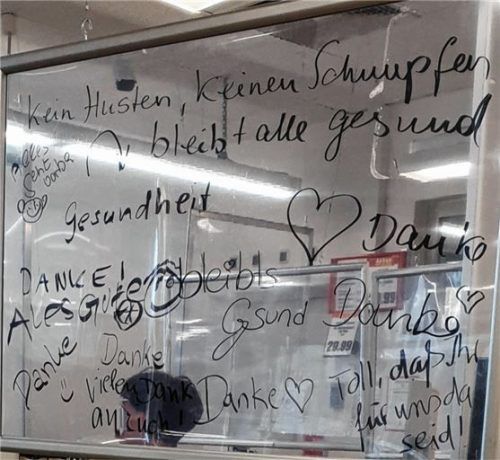 Kein Husten, Keinen Schnupfen
bleibt alle gesund
Alles
Geht
vorbei
Gesundheit
Danke
DANKE!
ALES GUTE
bleibts
Gsund
Danke
29.99
Danke
Danke
Vielen Dank
an euch!
Danke
Toll, daß Ihr
für uns da
seid!